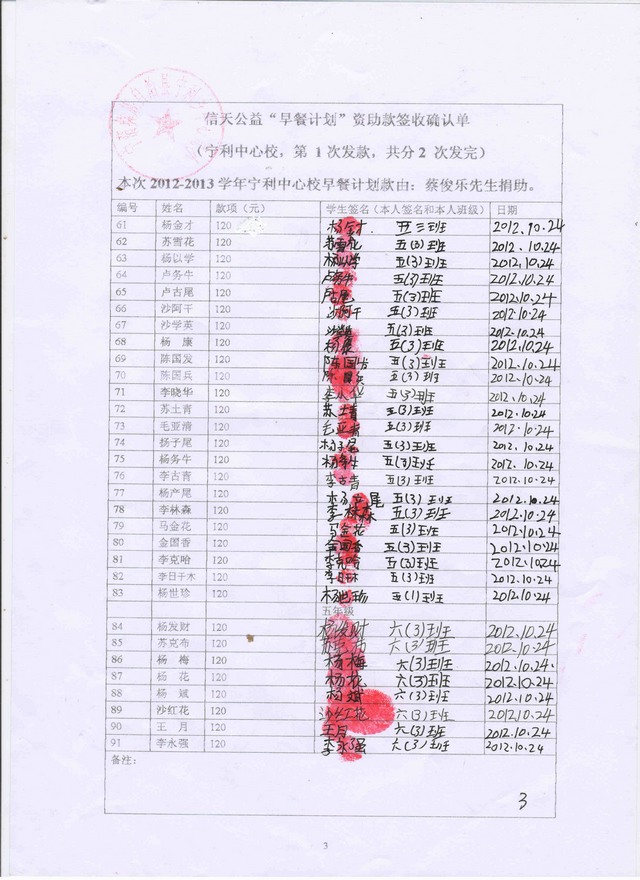 信天公益“早餐计划”资助款签收确认单
（宁利中心校，第 1 次发款，共分 2 次发完）
本次 2012-2013 学年宁利中心校早餐计划款由：蔡俊乐先生捐助。
编号 姓名 款项（元） 学生签名（本人签名和本人班级） 日期
61 杨金才 120 杨金才 五三班 2012.10.24
62 苏雪花 120 苏雪花 五(3)班 2012.10.24
63 杨以学 120 杨以学 五(3)班 2012.10.24
64 卢务牛 120 卢务牛 五(3)班 2012.10.24
65 卢古尾 120 卢古尾 五(3)班 2012.10.24
66 沙阿干 120 沙阿干 五(3)班 2012.10.24
67 沙学英 120 五(3)班 2012.10.24
68 杨 康 120 杨康 五(3)班 2012.10.24
69 陈国发 120 陈国发 五(3)班 2012.10.24
70 陈国兵 120 陈国兵 五(3)班 2012.10.24
71 李晓华 120 五(3)班 2012.10.24
72 苏土青 120 苏土青 五(3)班 2012.10.24
73 毛亚清 120 毛亚清 五(3)班 2012.10.24
74 杨子尾 120 杨子尾 五(3)班 2012.10.24
75 杨务牛 120 杨务牛 五(3)班 2012.10.24
76 李古青 120 李古青 五(3)班 2012.10.24
77 杨产尾 120 杨产尾 五(3)班 2012.10.24
78 李林森 120 李林森 五(3)班 2012.10.24
79 马金花 120 马金花 五(3)班 2012.10.24
80 金国香 120 金国香 五(3)班 2012.10.24
81 李克哈 120 李克哈 五(3)班 2012.10.24
82 李日干木 120 五(3)班 2012.10.24
83 杨世珍 120 杨世珍 五(1)班 2012.10.24
五年级
84 杨发财 120 杨发财 六(3)班 2012.10.24
85 苏克布 120 苏克布 六(3)班 2012.10.24
86 杨 梅 120 杨梅 六(3)班 2012.10.24.
87 杨 花 120 杨花 六(3)班 2012.10.24
88 杨 斌 120 杨斌 六(3)班 2012.10.24
89 沙红花 120 沙红花 六(3)班 2012.10.24
90 王 月 120 王月 六(3)班 2012.10.24
91 李永强 120 李永强 六(3)班 2012.10.24
备注：
3
3